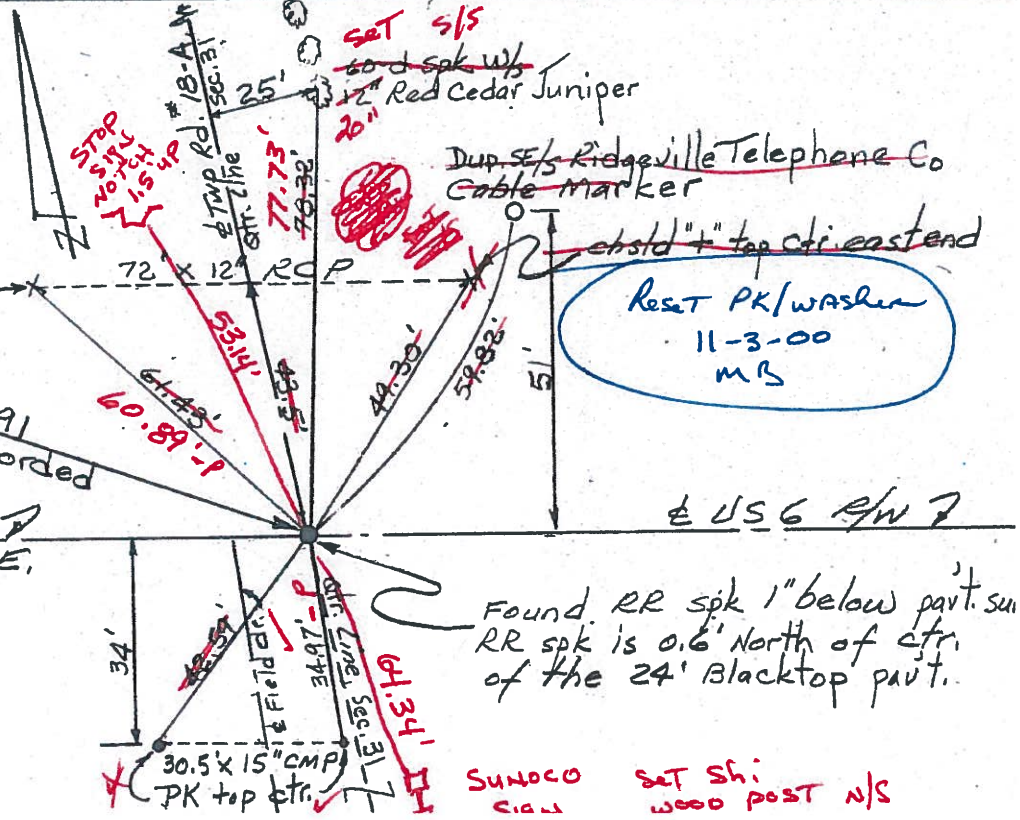 SET S/S
60-d spk W/s
12" Red Cedar Juniper
20"
25'
℄ Twp Rd. #18-A
Sec. 31
Qtr. Line
77.73'
78.32'
STOP
SIGN
NOTCH
1.5' UP
Dup. SE/s Ridgeville Telephone Co
Cable Marker
chsld "+" top ctr. east end
Reset PK/WASHER
11-3-00
MB
72' x 12" RCP
53.14'
61.43'
60.89'-P
49.30'
59.82'
51'
91
orded
E.
℄ US 6 R/W 7
Found RR spk 1" below pav't. su
RR spk is 0.6' North of ctr.
of the 24' Blacktop pav't.
34'
℄ Field dr.
34.97'-P
Qtr. Line Sec. 31
64.34'
30.5' x 15" CMP
PK top ctr.
SUNOCO
SIGN
SET Shi
WOOD POST N/S